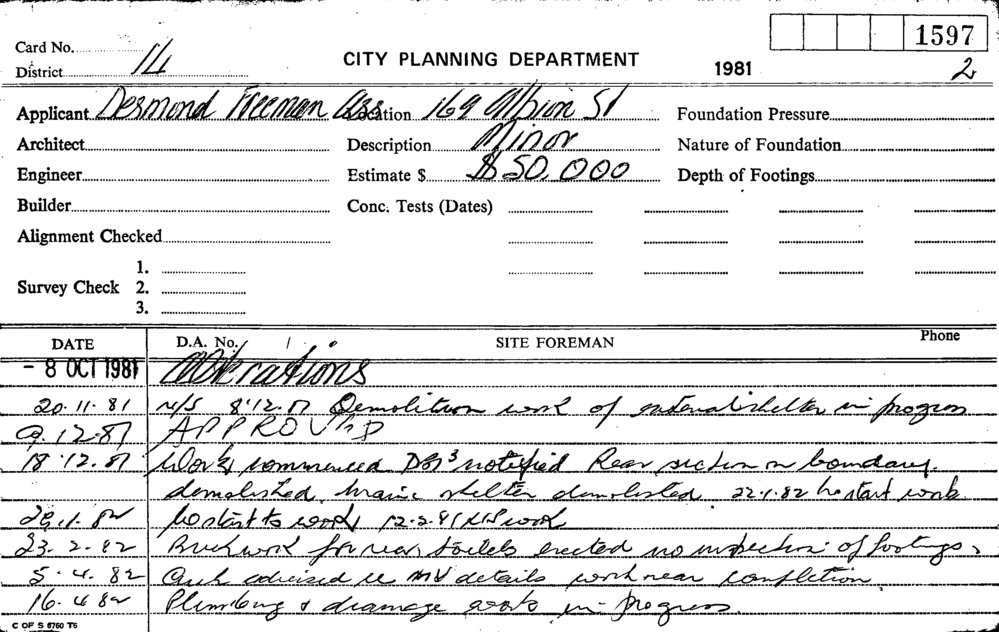 1597
Card No.
District 14
CITY PLANNING DEPARTMENT
1981
2
Applicant Desmond Freeman Ass Location 169 Albion St Foundation Pressure
Architect Description Minor Nature of Foundation
Engineer Estimate $ $50,000 Depth of Footings
Builder Conc. Tests (Dates)
Alignment Checked
1.
Survey Check 2.
3.
DATE D.A. No. SITE FOREMAN Phone
- 8 OCT 1981 Alterations
20.11.81 N/S 8.12.81 Demolition work of external shelter in progress
9.12.81 APPROVED
18.12.81 Work commenced notified Rear section on boundary
demolished, shelter demolished 22.1.82 No start work
29.1.82 No start to work, 12.2.81 N/S work
23.2.82 Brickwork for rear toilets erected no inspection of footings.
5.4.82 Arch advised re MV details work near completion
16.4.82 Plumbing & drainage work in progress.
C OF S 6760 T5